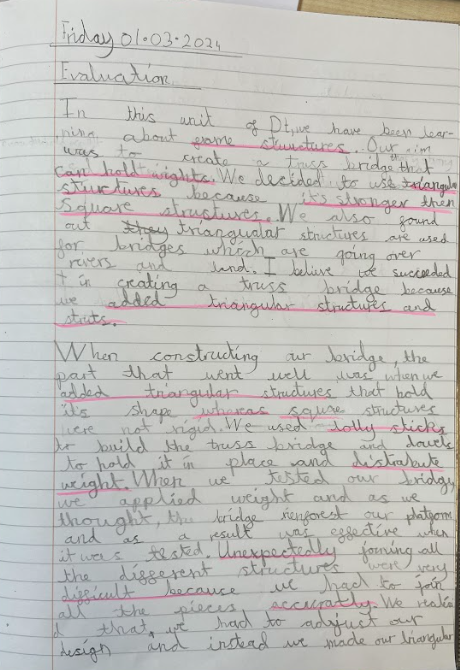 Friday 01.03.2024
Evaluation
In this unit of Dt, we have been lear-
ning about frame stuructures. Our aim
was to create a truss bridge that
can hold wights. We decided to use triangular
sturctures because it's stronger then
square strustures. We also found
out they triangular structures are used
for bridges which are going over
rivers and land. I belive we succeeded
t in creating a truss bridge because
we added triangular structures and
struts.
When constructing our bridge, the
part that went well was when we
added triangular structures that hold
it's shape whereas squre structures
were not rigid. We used lolly sticks
to build the truss bridge and dowels
to hold it in place and distrabute
weight. When we tested our bridge,
we applied weight and as we
thought, the bridge rienforest our platform
and as a result was effective when
it was tested. Unexpectedly joining all
the different structures were very
difficult because we had to join
all the pieces accuratly. We realise
d that, we had to adyjust our
design and instead we made our triangular